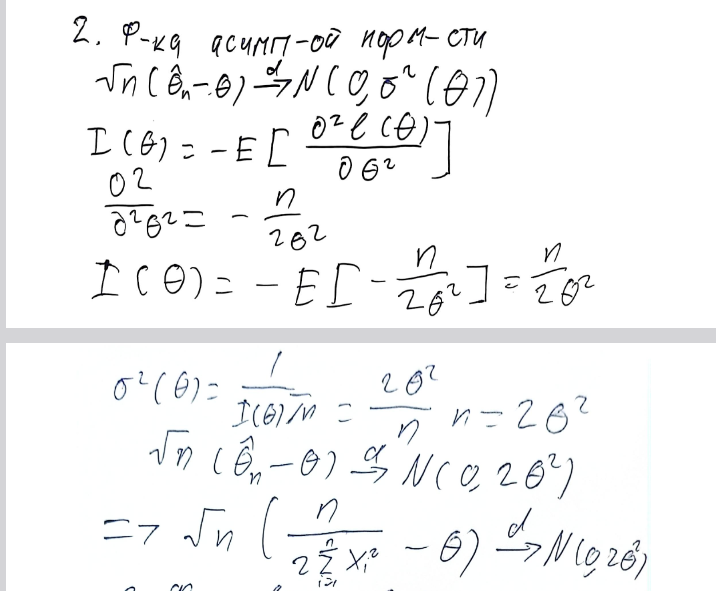 2. Ф-ка асимп-ой норм-сти
√n (θ̂ₙ - θ) →ᵈ N(0, σ²(θ))
I(θ) = -E [∂²ℓ(θ) / ∂θ²]
∂2 / ∂²θ² = - n / 2θ²
I(θ) = -E[- n / 2θ²] = n / 2θ²
σ²(θ) = 1 / I(θ)/n = 2θ² / n n = 2θ²
√n (θ̂ₙ - θ) →ᵈ N(0, 2θ²)
=> √n (n / 2 ∑ᵢ₌₁ⁿ Xᵢ² - θ) →ᵈ N(0, 2θ²)